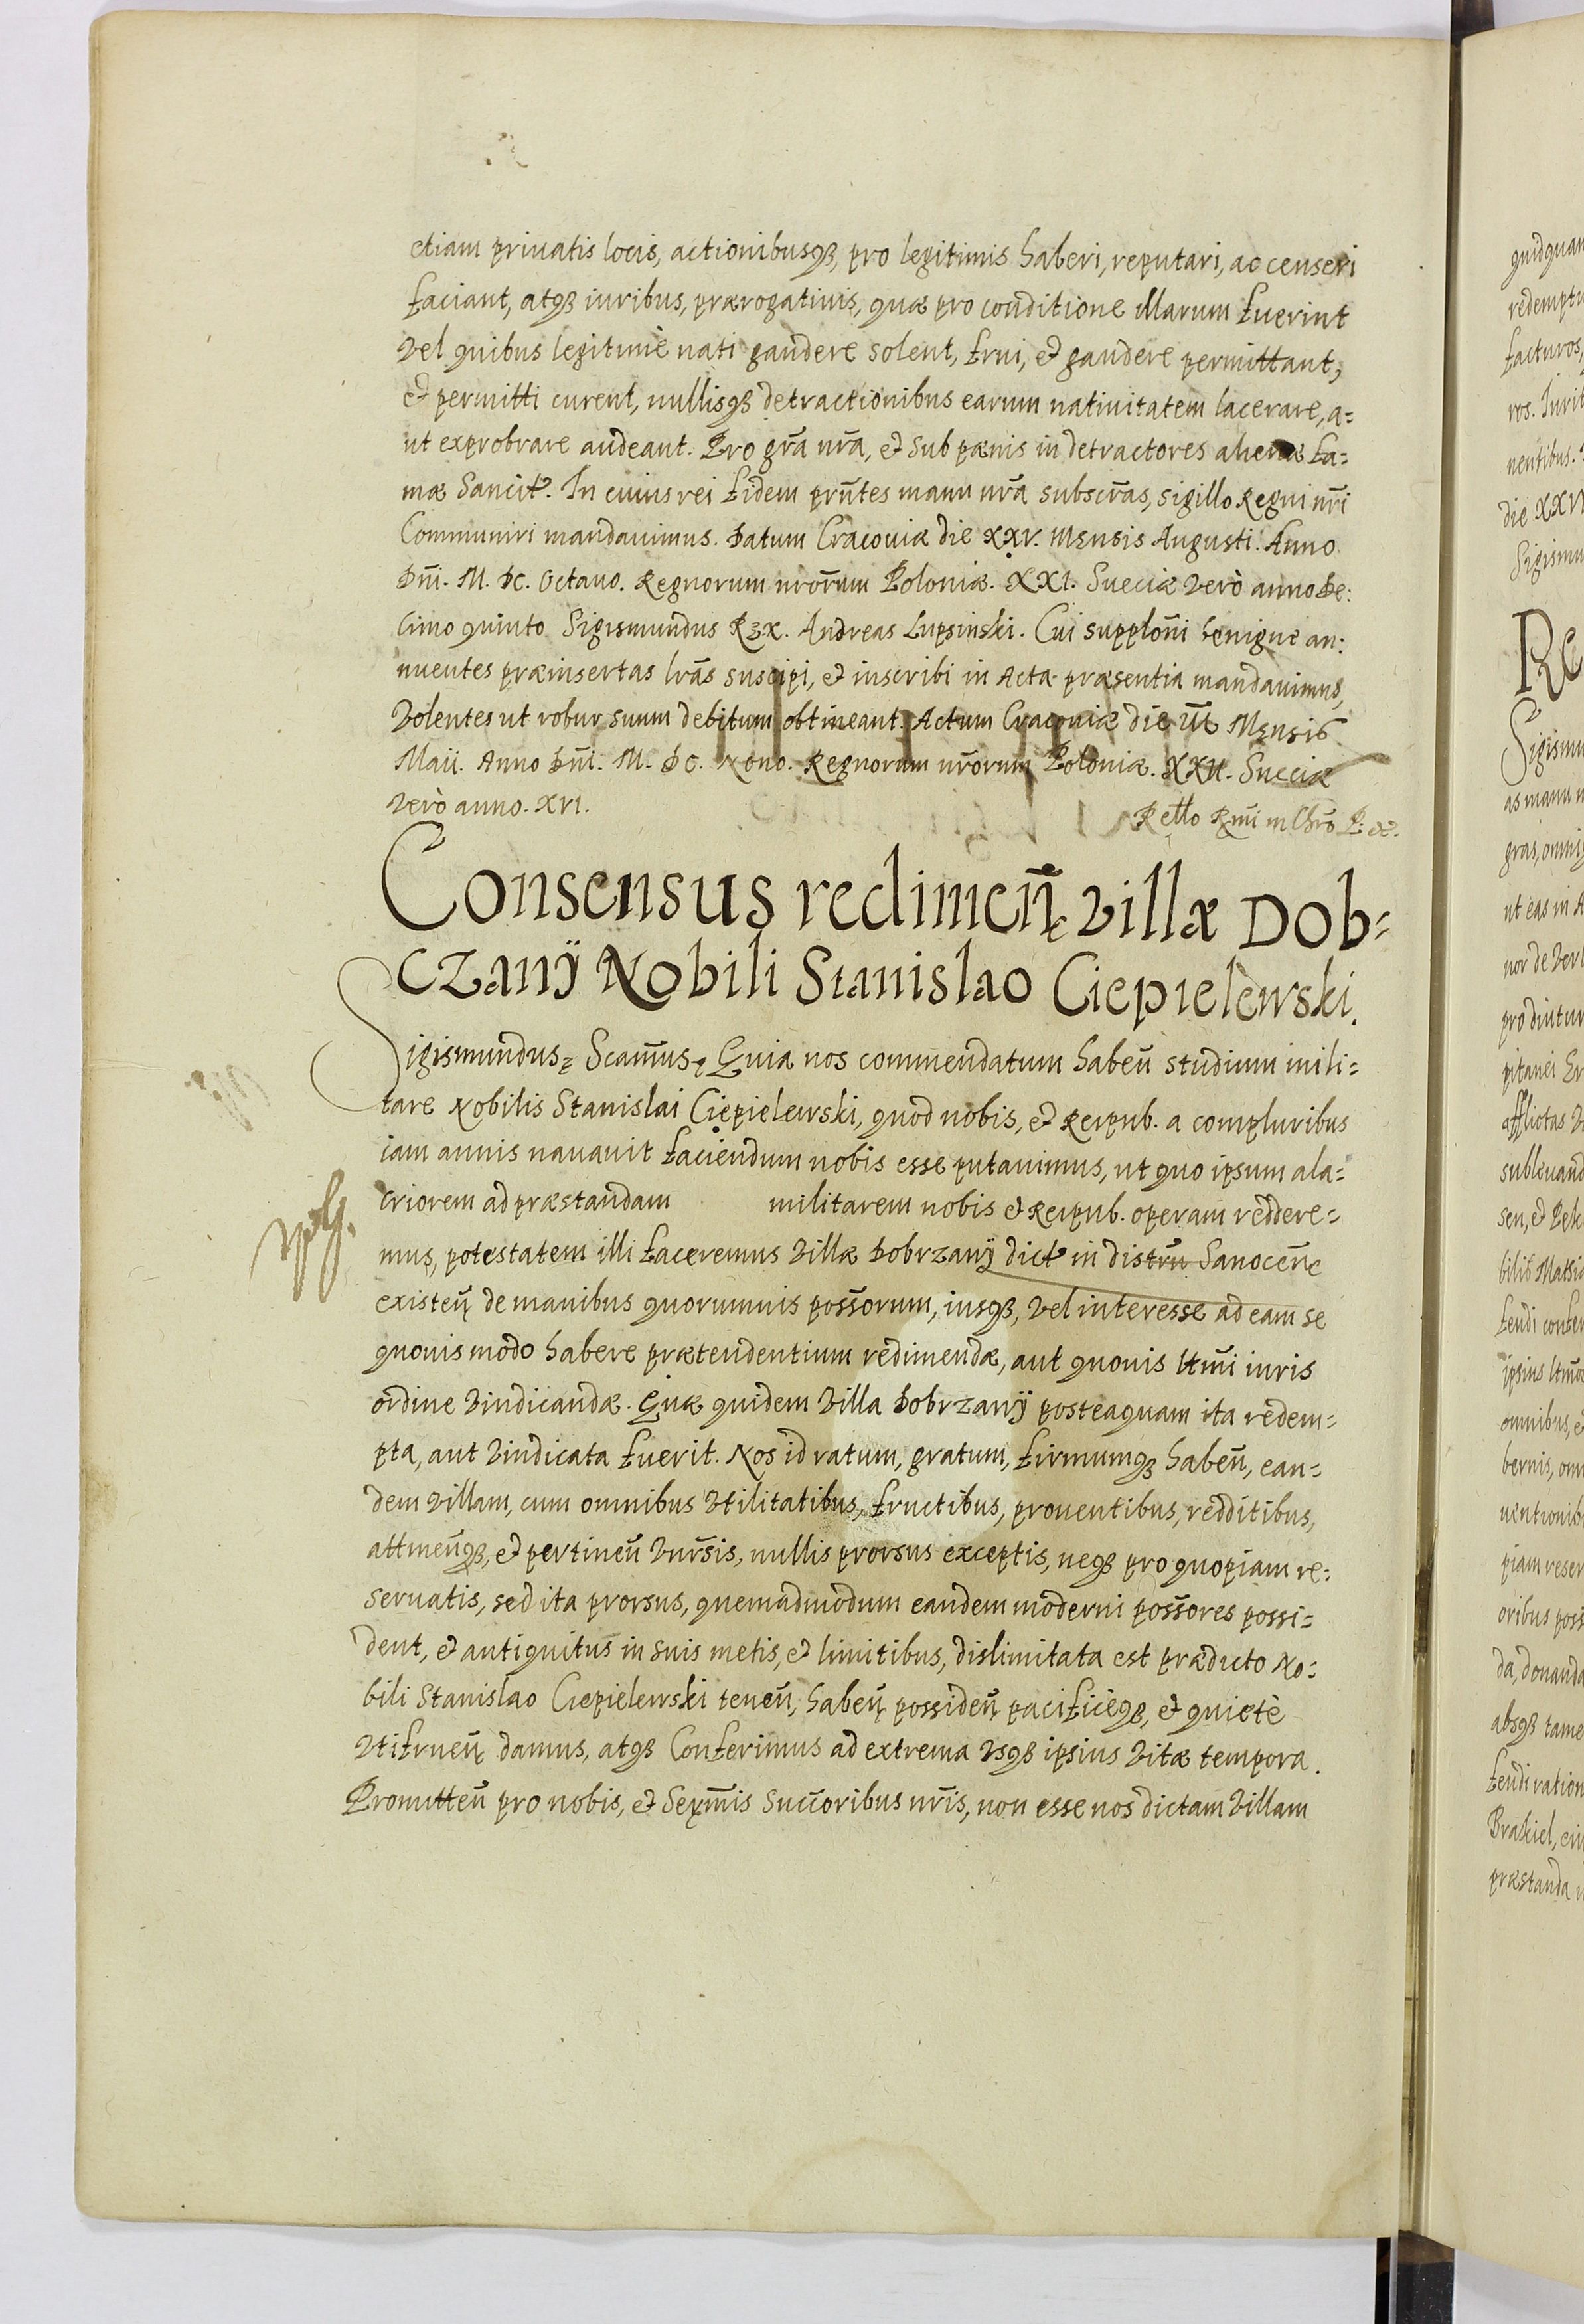 etiam priuatis locis, actionibusqȝ, pro legitimis haberi, reputari, ac censeri
faciant, atqȝ iuribus, prærogatiuis, quæ pro conditione illarum fuerint
vel quibus legitimè nati gaudere solent, frui, et gaudere permittant,
et permitti curent, nullisqȝ detractionibus earum natiuitatem lacerare, a=
ut exprobrare audeant. Pro grã nrã, et sub pænis in detractores alienæ fa=
mæ sancit. In cuius rei fidem prñtes manu nrã subscrãs, sigillo Regni nrĩ
Communiri mandauimus. Datum Cracouiæ die XXV. Mensis Augusti. Anno
Dñi. M. DC. Octauo. Regnorum nrõrum Poloniæ. XXI. Sueciæ verò anno De:
cimo quinto Sigismundus Rex. Andreas Lupsinski. Cui supplõni benigne an:
nuentes præinsertas lrãs suscipi, et inscribi in Acta præsentia mandauimus,
Volentes ut robur suum debitum obtineant. Actum Cracouiæ die Mensis
Maii. Anno Dñi. M. DC. Nono. Regnorum nrõrum Poloniæ. XXII. Sueciæ
verò anno. XVI.
Rettо Rmĩ in Chrõ P. etc.
Consensus redimeñ villæ Dob=
czanÿ Nobili Stanislao Ciepielewski.
Sigismundus Scamus Quia nos commendatum habeñ studium mili=
tare Nobilis Stanislai Ciepielewski, quod nobis, et Reipub. a compluribus
iam annis nauauit faciendum nobis esse putauimus, ut quo ipsum ala=
criorem ad præstandam militarem nobis et Reipub. operam reddere=
mus, potestatem illi faceremus villæ Dobrzanÿ dict in distrũ Sanoceñ
existeñ de manibus quorumuis possõrum, iusqȝ, vel interesse ad eam se
quouis modo habere prætendentium redimendæ, aut quouis ltmĩ iuris
ordine vindicandæ. Quæ quidem villa Dobrzanÿ posteaquam ita redem=
pta, aut vindicata fuerit. Nos id ratum, gratum, firmumqȝ habeñ, ean=
dem villam, cum omnibus vtilitatibus, fructibus, prouentibus, redditibus,
attineñqȝ, et pertineñ vnrsis, nullis prorsus exceptis, neqȝ pro quopiam re=
seruatis, sed ita prorsus, quemadmodum eandem moderni possõres possi=
dent, et antiquitus in suis metis, et limitibus, dislimitata est prædicto No=
bili Stanislao Ciepielewski teneñ, habeñ possideñ pacificèqȝ, et quietè
vtifrueñ damus, atqȝ Conferimus ad extrema vsqȝ ipsius vitæ tempora.
Promitteñ pro nobis, et Serm̃is Succõribus nrĩs, non esse nos dictam villam